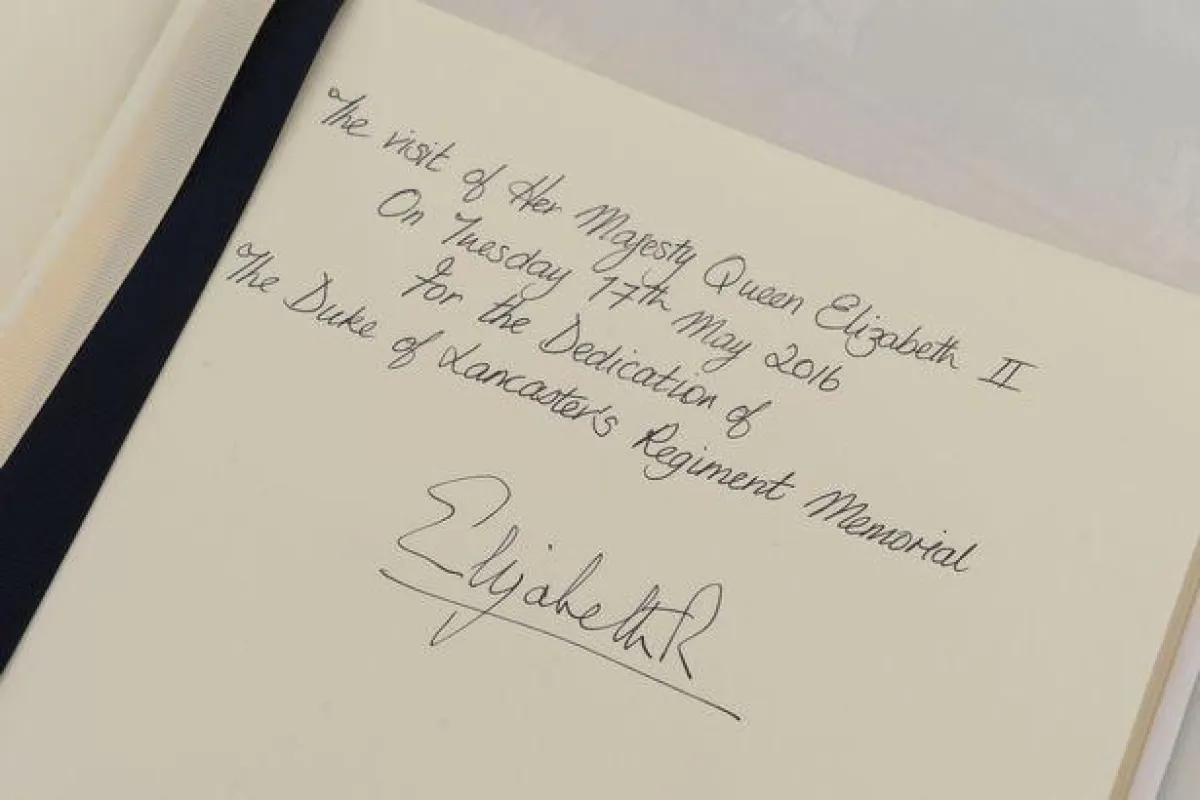 The visit of Her Majesty Queen Elizabeth II
On Tuesday 17th May 2016
for the Dedication of
The Duke of Lancaster's Regiment Memorial
Elizabeth R